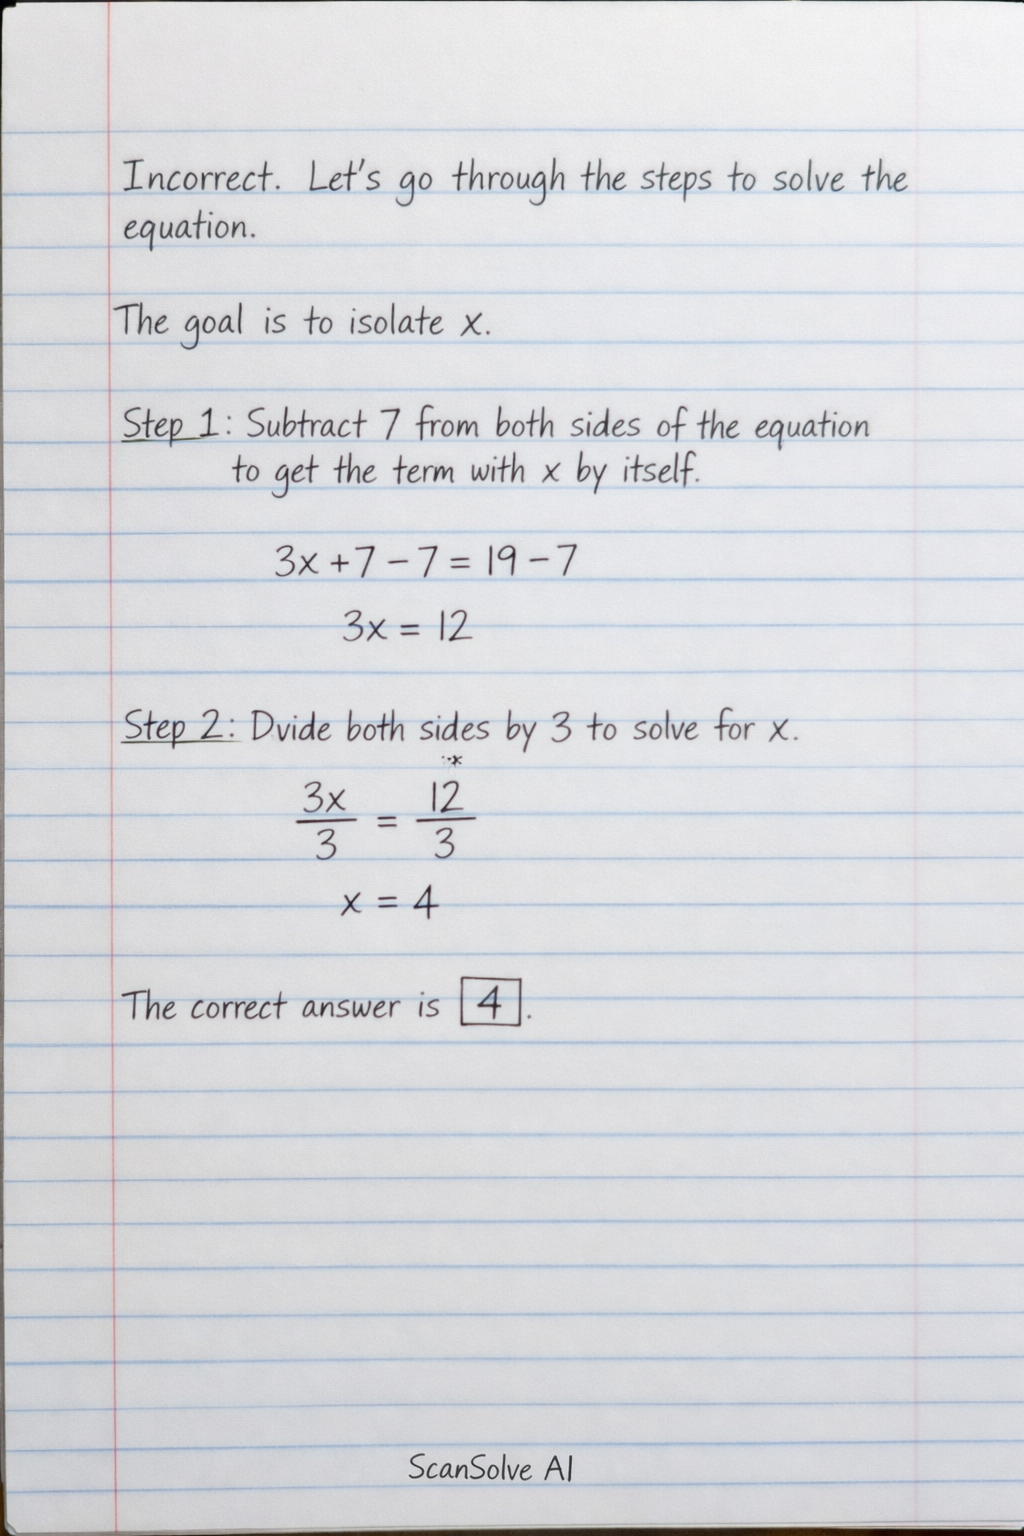 Incorrect. Let's go through the steps to solve the
equation.
The goal is to isolate x.
Step 1: Subtract 7 from both sides of the equation
to get the term with x by itself.
3x + 7 - 7 = 19 - 7
3x = 12
Step 2: Dvide both sides by 3 to solve for x.
3x/3 = 12/3
x = 4
The correct answer is 4.
ScanSolve AI